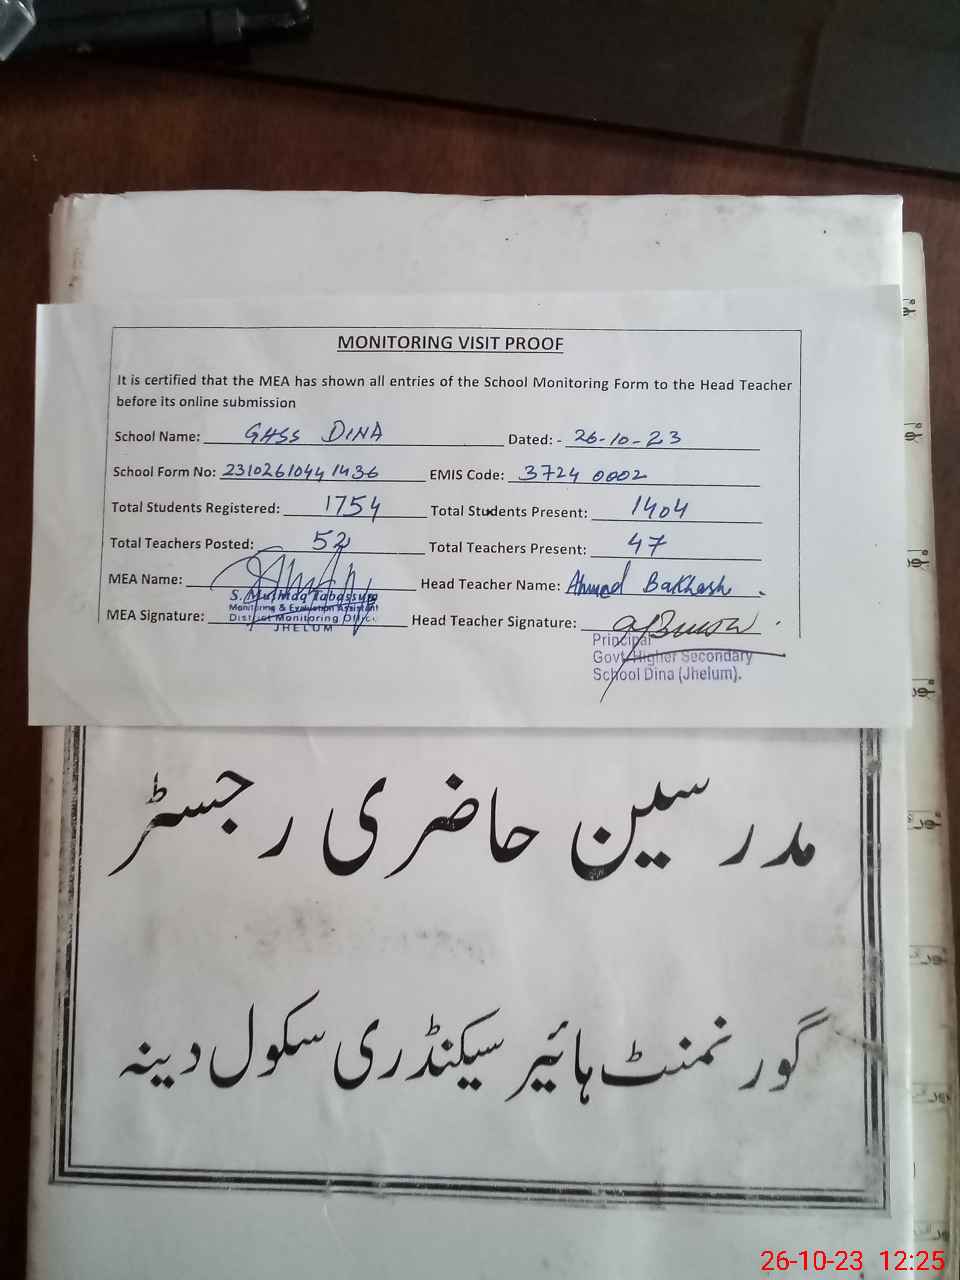 MONITORING VISIT PROOF
It is certified that the MEA has shown all entries of the School Monitoring Form to the Head Teacher
before its online submission
School Name: GHSS DINA Dated: - 26-10-23
School Form No: 23102610441436 EMIS Code: 3724 0002
Total Students Registered: 1754 Total Students Present: 1404
Total Teachers Posted: 52 Total Teachers Present: 47
MEA Name: Head Teacher Name: Ahmed Bakhash
S. Tabassum
Monitoring & Evaluation Assistant
MEA Signature: Head Teacher Signature:
District Monitoring Office
JHELUM
Principal
Govt. Higher Secondary
School Dina (Jhelum).
مدرسین حاضری رجسٹر
گورنمنٹ ہائیر سیکنڈری سکول دینہ
26-10-23 12:25